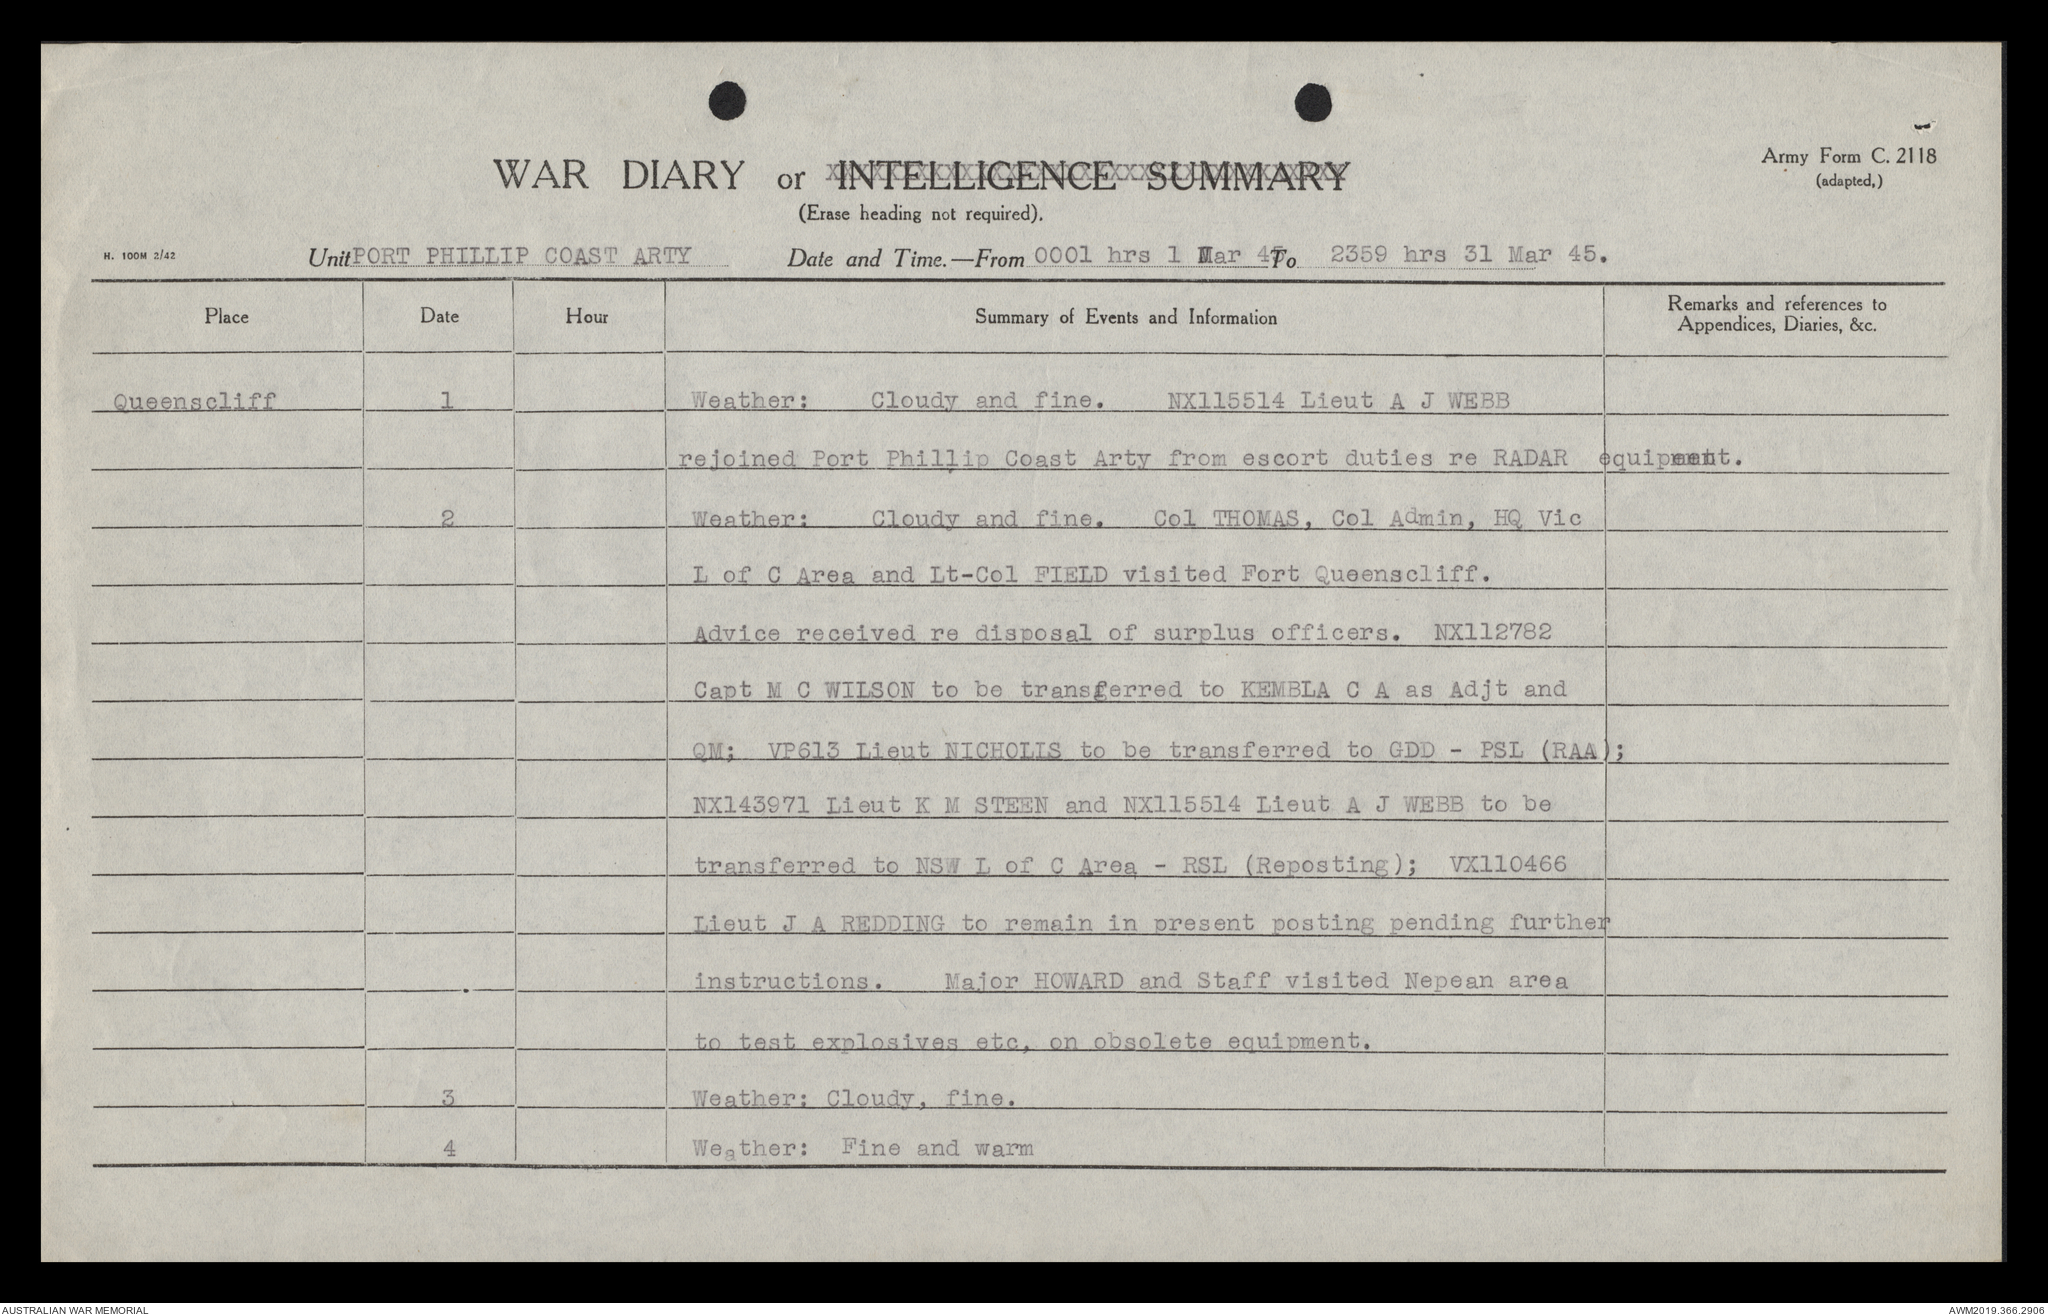 WAR DIARY or INTELLIGENCE SUMMARY
(Erase heading not required).
Army Form C. 2118
(adapted,)
H. 100M 2/42
Unit PORT PHILLIP COAST ARTY Date and Time.—From 0001 hrs 1 Mar 45 To 2359 hrs 31 Mar 45.
Place Date Hour Summary of Events and Information Remarks and references to
Appendices, Diaries, &c.
Queenscliff 1 Weather: Cloudy and fine. NX115514 Lieut A J WEBB
rejoined Port Phillip Coast Arty from escort duties re RADAR equipment.
2 Weather: Cloudy and fine. Col THOMAS, Col Admin, HQ Vic
L of C Area and Lt-Col FIELD visited Fort Queenscliff.
Advice received re disposal of surplus officers. NX112782
Capt M C WILSON to be transferred to KEMBLA C A as Adjt and
QM; VP613 Lieut NICHOLLS to be transferred to GDD - PSL (RAA);
NX143971 Lieut K M STEEN and NX115514 Lieut A J WEBB to be
transferred to NSW L of C Area - RSL (Reposting); VX110466
Lieut J A REDDING to remain in present posting pending further
instructions. Major HOWARD and Staff visited Nepean area
to test explosives etc, on obsolete equipment.
3 Weather: Cloudy, fine.
4 Weather: Fine and warm
AUSTRALIAN WAR MEMORIAL
AWM2019.366.2906